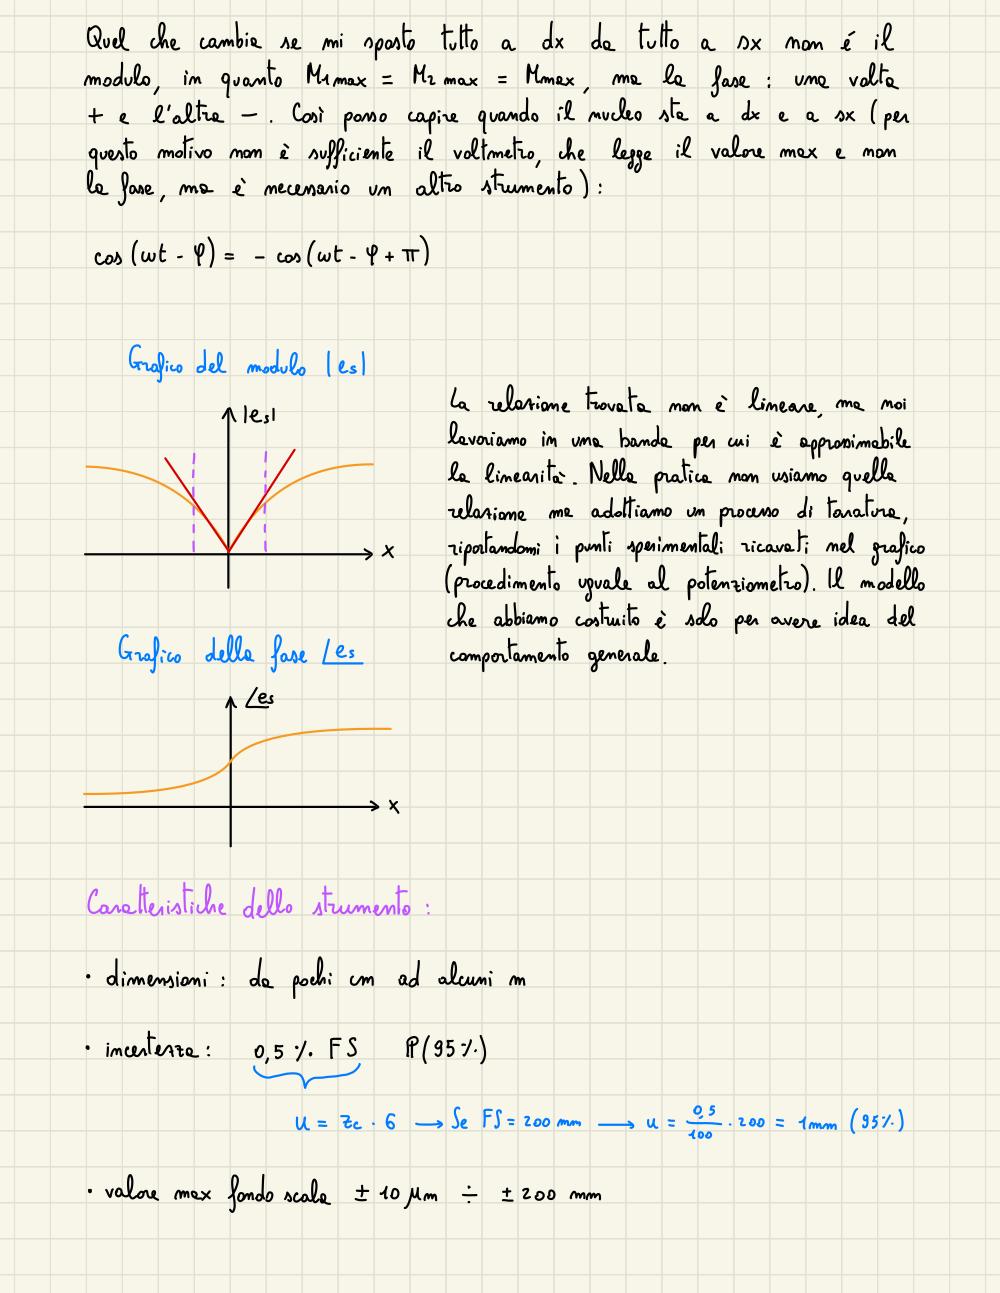 Quel che cambia se mi sposto tutto a dx da tutto a sx non é il
modulo, in quanto M₁max = M₂ max = Mmax, ma la fase : una volta
+ e l'altra − . Così posso capire quando il nucleo sta a dx e a sx (per
questo motivo non è sufficiente il voltmetro, che legge il valore max e non
la fase, ma è necessario un altro strumento) :
cos (ωt - φ) = - cos (ωt - φ + π)
Grafico del modulo |es|
|es|
x
La relazione trovata non è lineare, ma noi
lavoriamo in una banda per cui è approssimabile
la linearità. Nella pratica non usiamo quella
relazione ma adottiamo un processo di taratura,
riportandomi i punti sperimentali ricavati nel grafico
(procedimento uguale al potenziometro). Il modello
che abbiamo costruito è solo per avere idea del
comportamento generale.
Grafico della fase ∠es
∠es
x
Caratteristiche dello strumento :
• dimensioni : da pochi cm ad alcuni m
• incertezza : 0,5 % FS P(95%)
u = zc · 6 → Se FS = 200 mm → u = 0,5/100 · 200 = 1mm (95%)
• valore max fondo scala ± 10 μm ÷ ± 200 mm